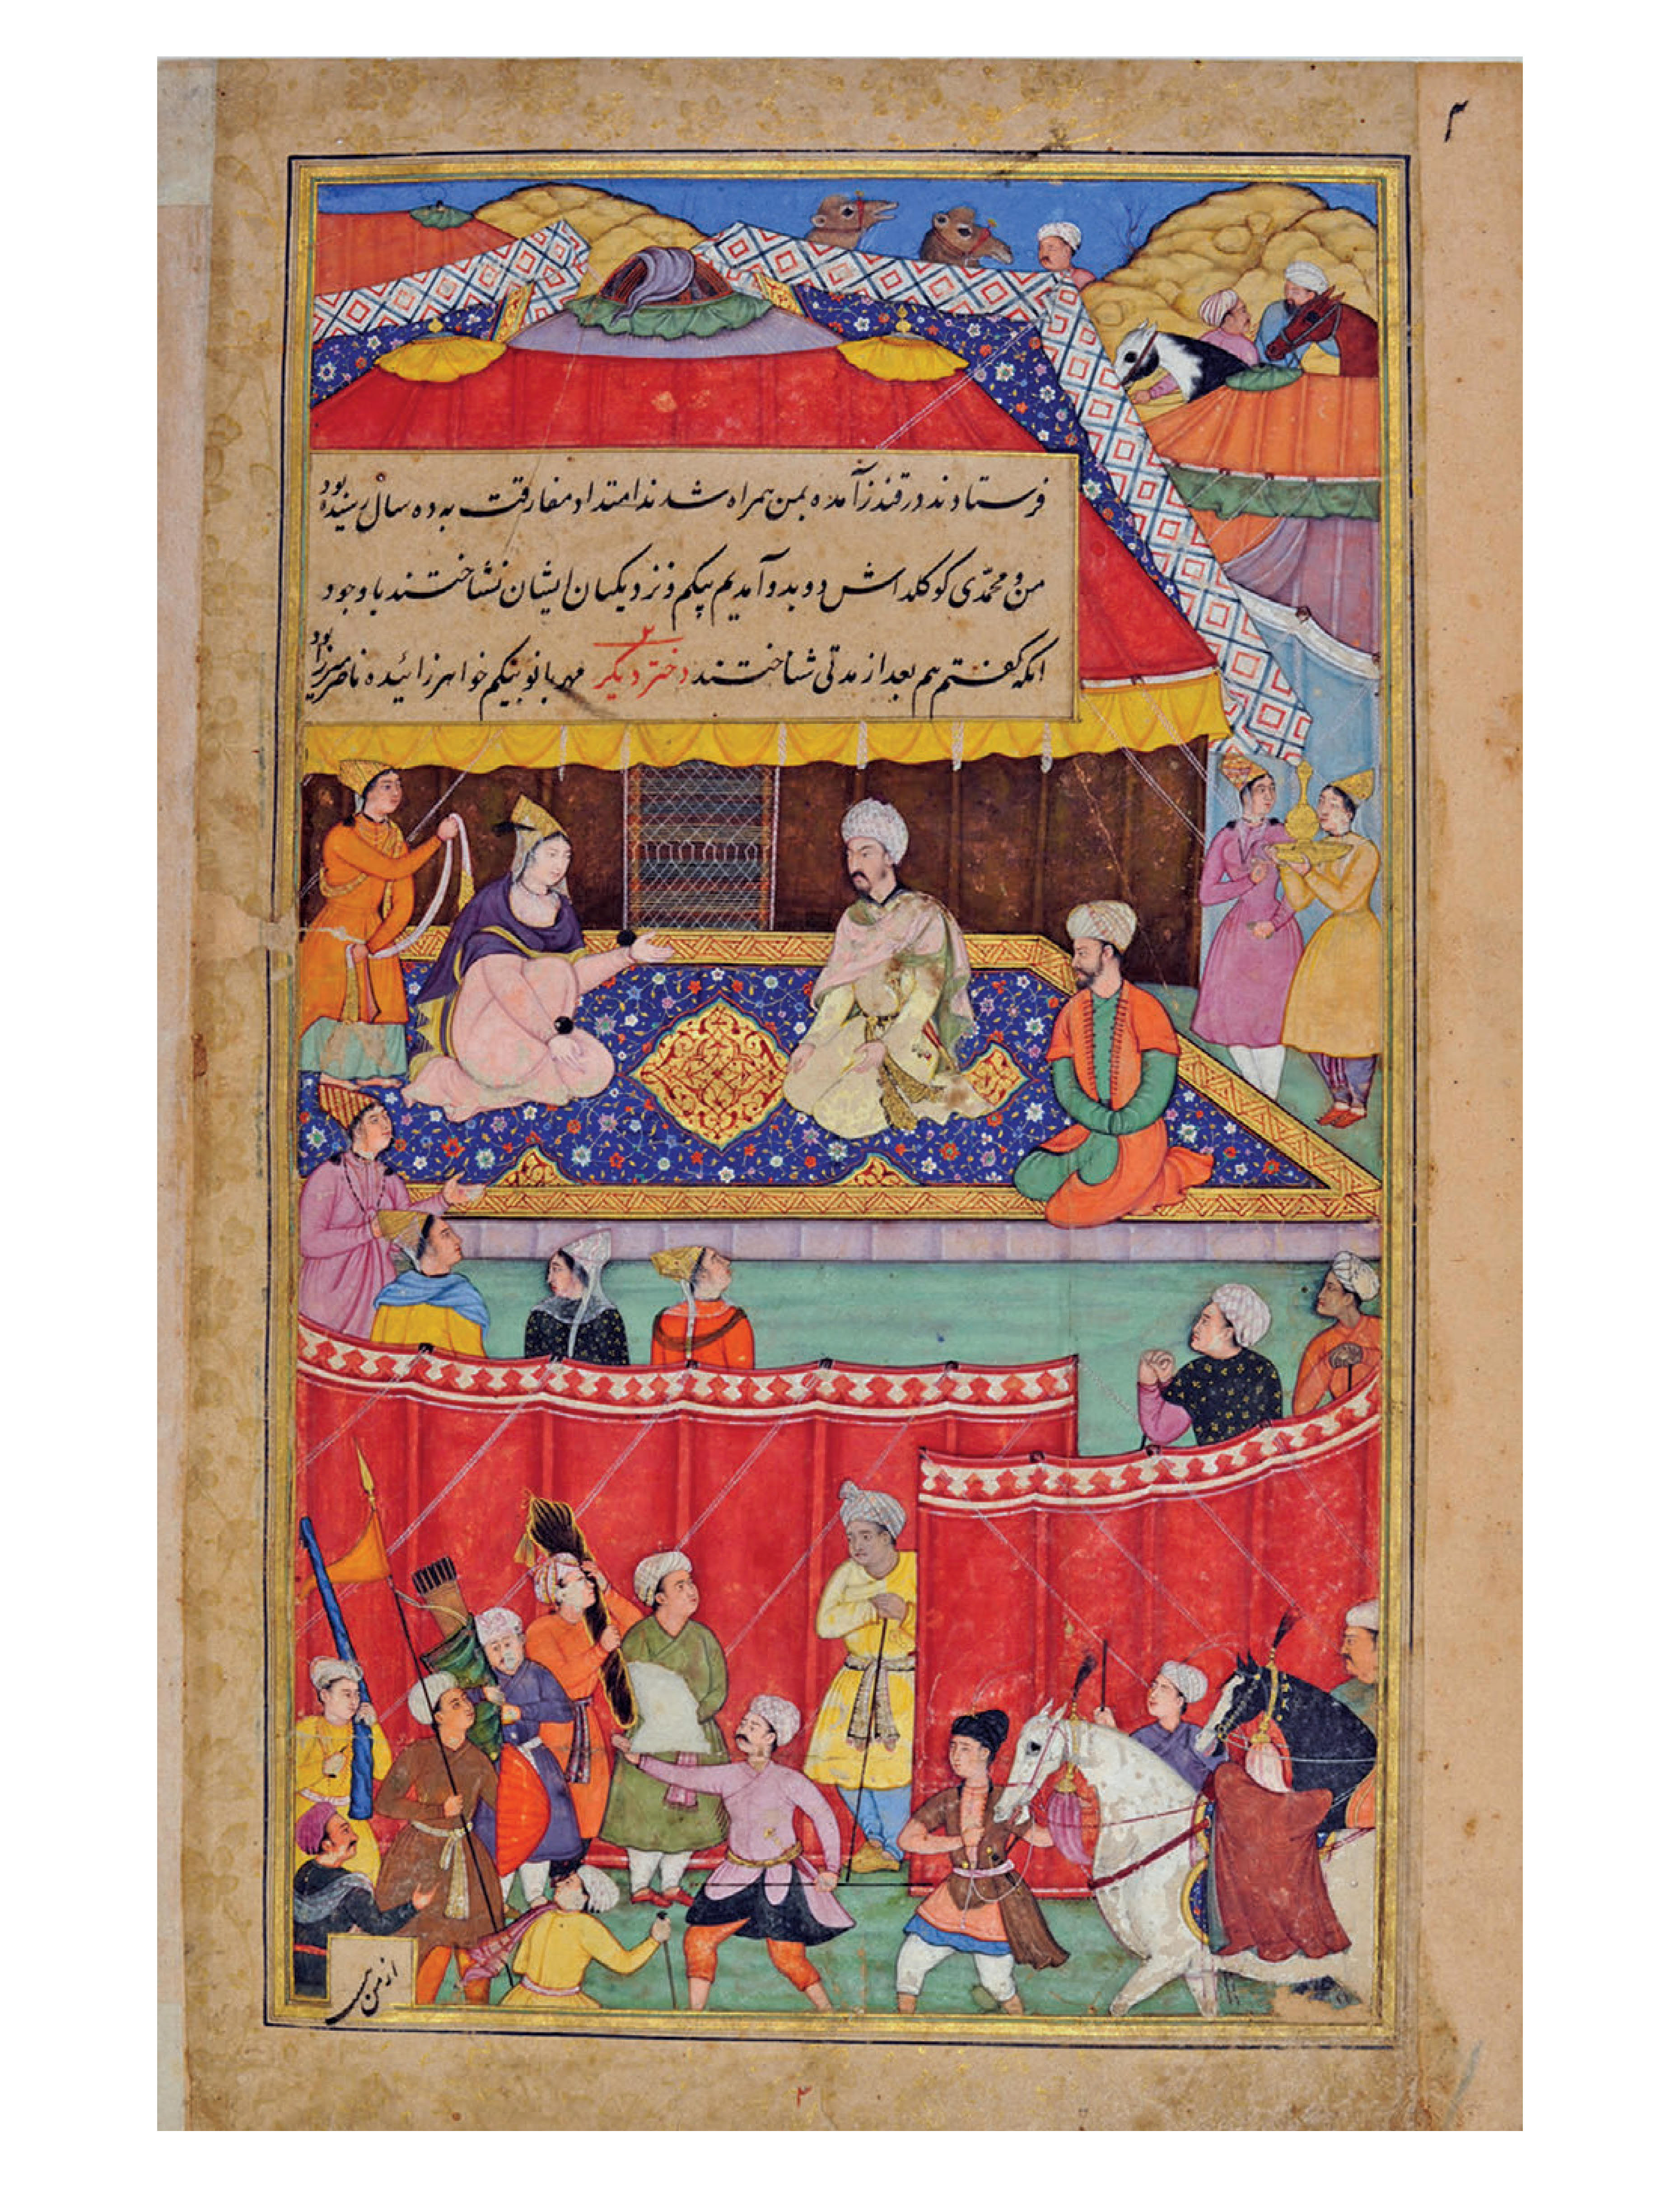 ۳
فرستادند در قندز آمده بمن همراه شدند امتداد مفارقت به ده سال رسیده بود
من و محمدی کوکلداش دو بدو آمدیم بیکم و نزدیکیان ایشان نشاختند با وجود
انکه گفتم هم بعد از مدتی شناختند دختر دیگر مهربانو بیکم خواهر زائیده ناصر میرزا بود
از من
۳